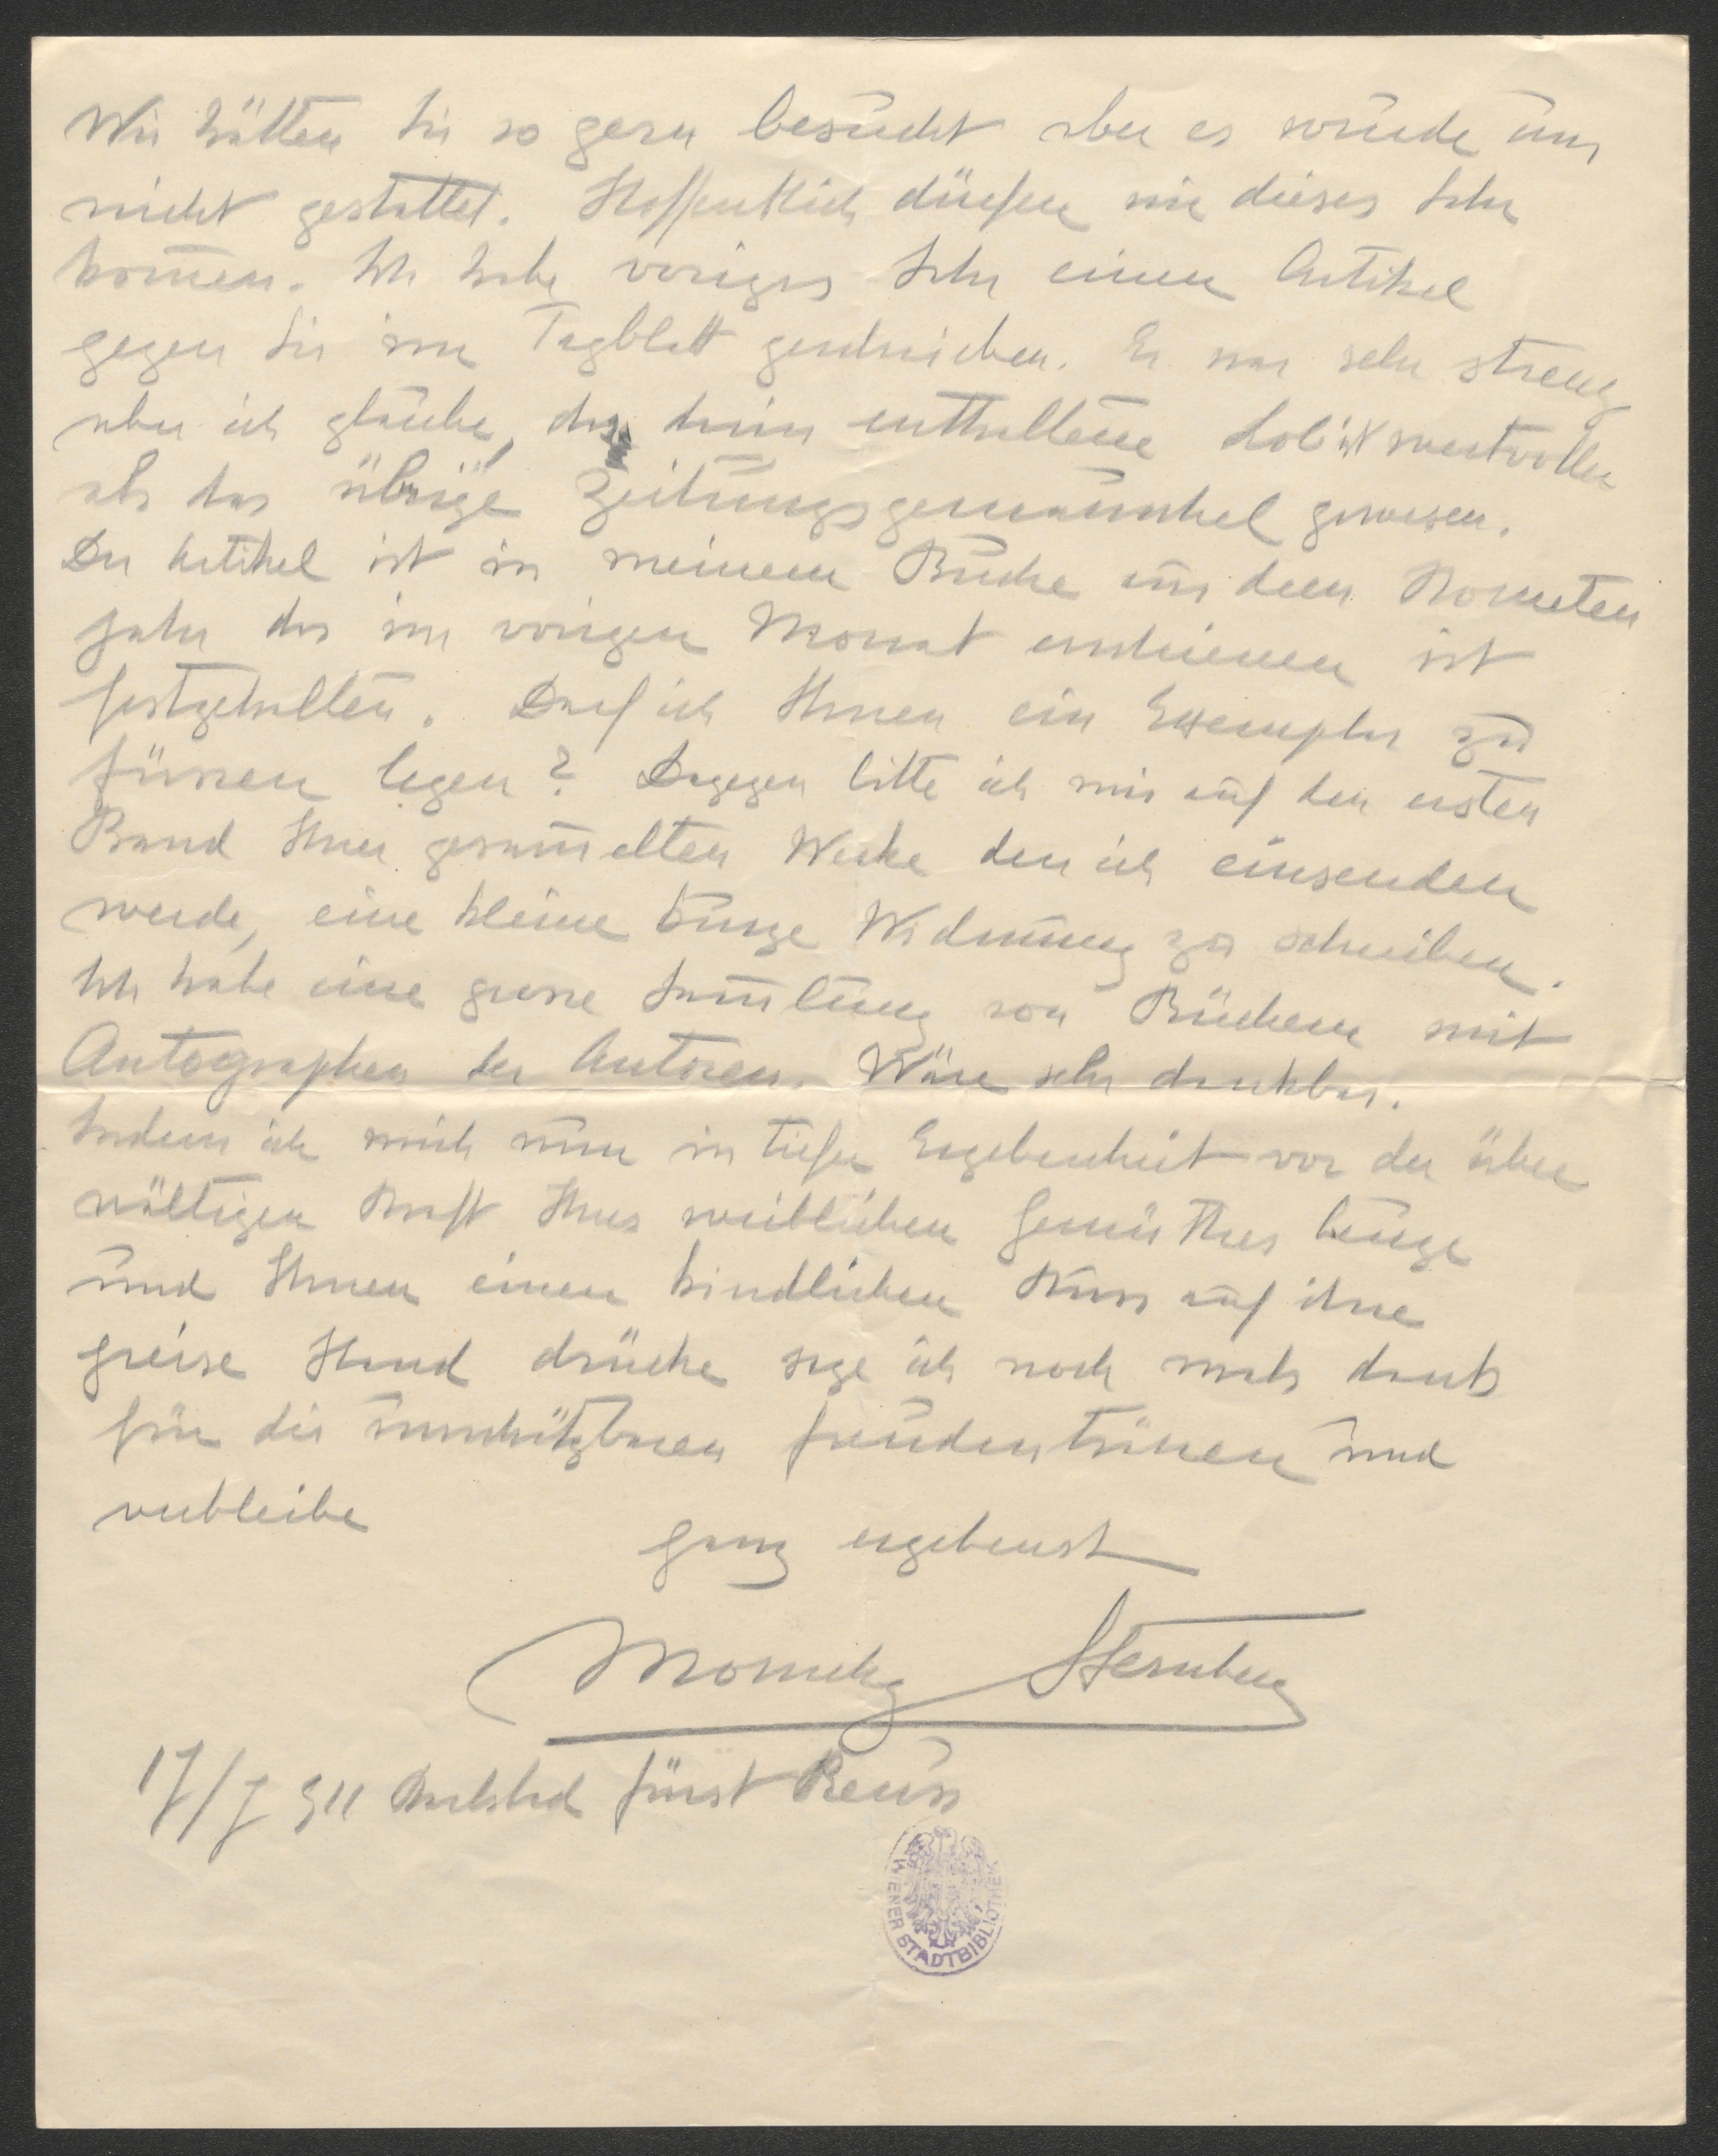 Wir hätten Sie so gern besucht aber es wurde uns
nicht gestattet. Hoffentlich dürfen wir dieses Jahr
kom̄en. Ich habe voriges Jahr einen Artikel
gegen Sie im Tagblatt geschrieben. Er war sehr streng
aber ich glaube, das darin enthaltene Lob ist wertvoller
als das übrige Zeitungsgemaunkel gewesen.
Der Artikel ist in meinem Buche aus dem Kometen
jahr das im vorigen Monat erschienen ist
festgehalten. Darf ich Ihnen ein Exemplar zu
füssen legen? Dagegen bitte ich mir auf den ersten
Band Ihrer gesam̄elten Werke den ich einsenden
werde, eine kleine kurze Widmung zu schreiben.
Ich habe eine grosse Sam̄lung von Büchern mit
Autographen der Autoren. Wäre sehr dankbar.
Indem ich mich nun in tiefer Ergebenheit vor der über
wältigen Kraft Ihres weiblichen Gemüthes beuge
und Ihnen einen kindlichen Kuss auf ihre
greise Hand drücke sage ich noch mals dank
für die unschätzbaren freudentränen und
verbleibe
ganz ergebenst
Sternberg
17/7 911 Karlsbad fürst Reuss
WIENER STADTBIBLIOTHEK